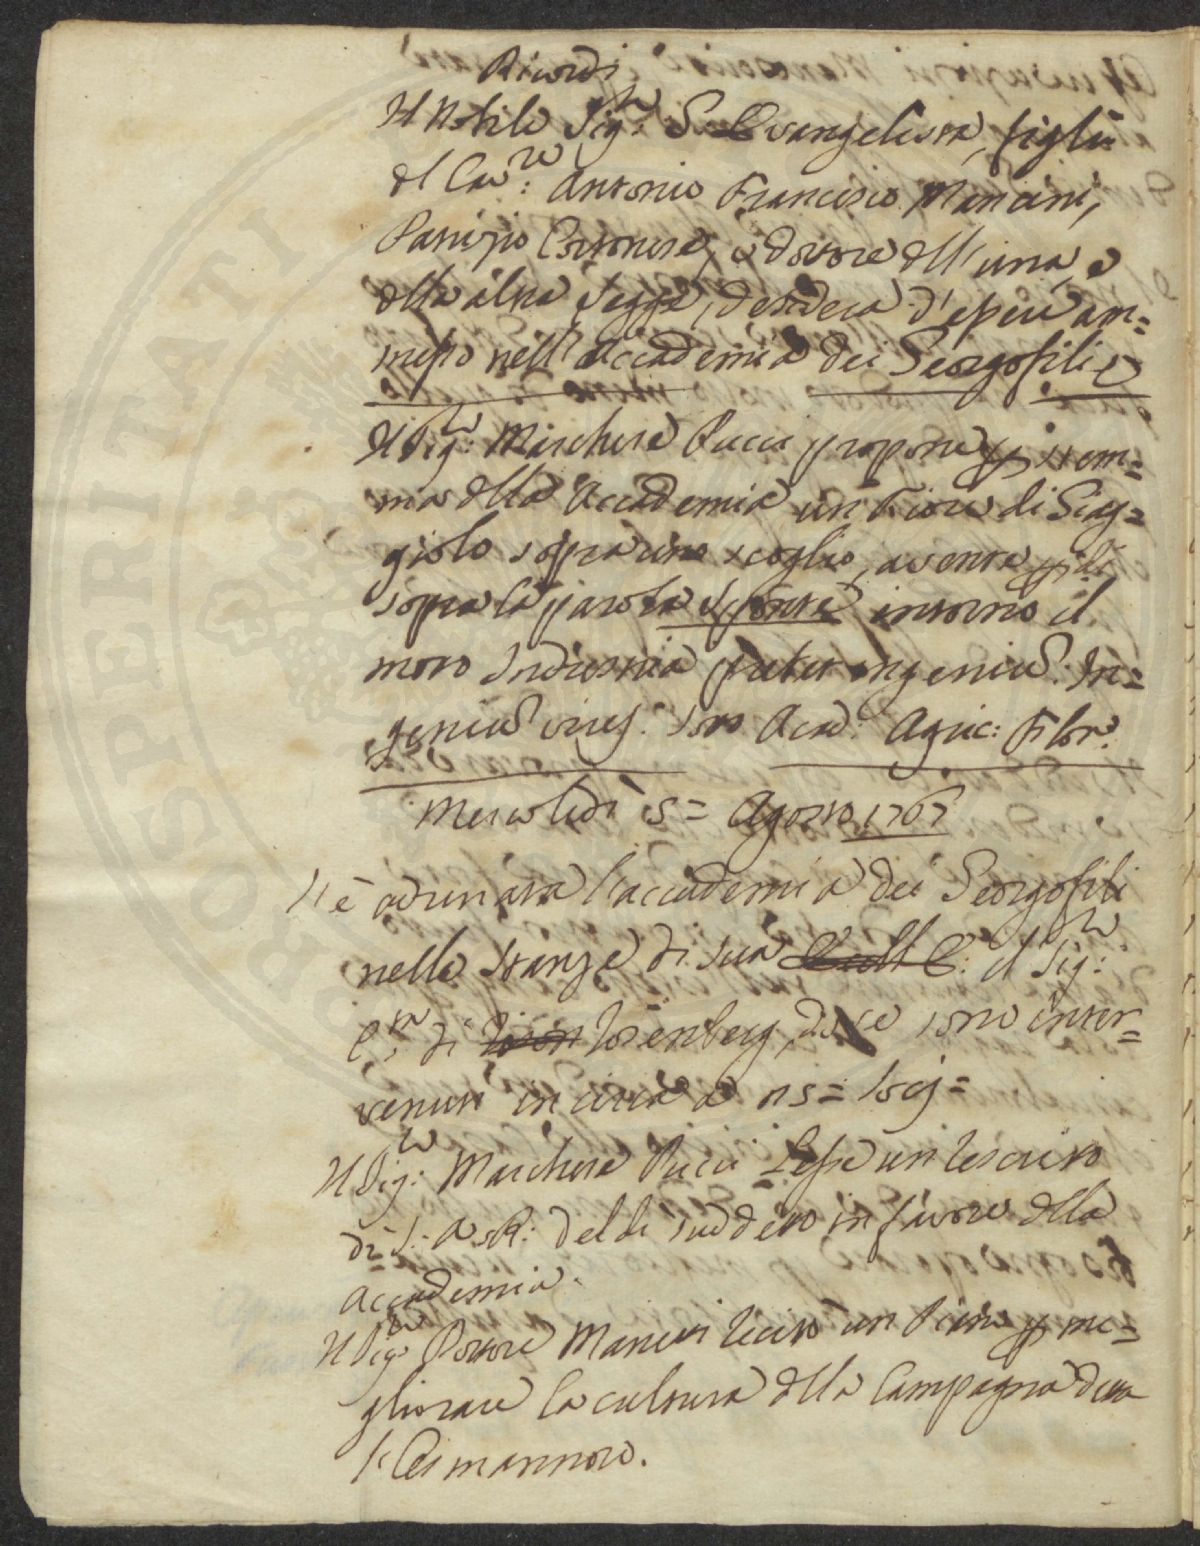 Ricordi
Il Nobile Sig.re S Evangelista, figlio
del Cav.re: Antonio Francesco Mancini,
Patrizio Cortonese, e dottore dell'una, e
della altra Legge, desidera d'essere am=
messo nell'Accademia dei Georgofili
Il Sig.re: Marchese Pucci propone per stem=
ma della Accademia un Fiore di Giag=
giolo sopra uno scoglio, avente per di
sopra la parola Sponte intorno il
moto Industria preter ingeniu. In=
geniu vires. Acad: Agric: Flor:
Mercoledì 5= Agosto 1767
Si è adunata l'accademia dei Georgofili
nelle stanze di sua il Sig.re:
C.te di Rosenberg, dove sono inter=
venuti in circa a n 5= Socj=
Il Sig.re: Marchese Pucci Lesse un rescritto
di S: A: R: del dì suddetto in favore della
Accademia.
Il Sig.re Dottore Manetti recitò un per me=
gliorare la cultura della Campagna detta
l'Osmannoro.